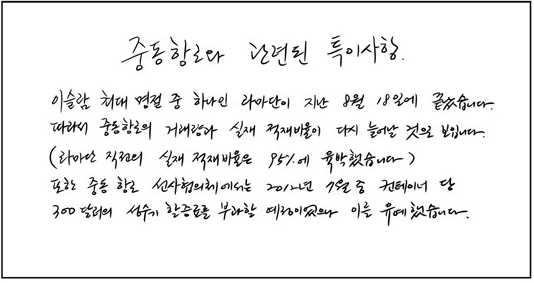 중동항로와 관련된 특이사항.
이슬람 최대 명절 중 하나인 라마단이 지난 8월 18일에 끝났습니다.
따라서 중동항로의 거래량과 실재 적재비율이 다시 늘어날 것으로 보입니다.
(라마단 직전의 실재 적재비율은 95%에 육박했습니다)
또한 중동 항로 선사협의체에서는 2012년 7월 중 컨테이너 당
300달러의 성수기 할증료를 부과할 예정이었으나 이를 유예했습니다.